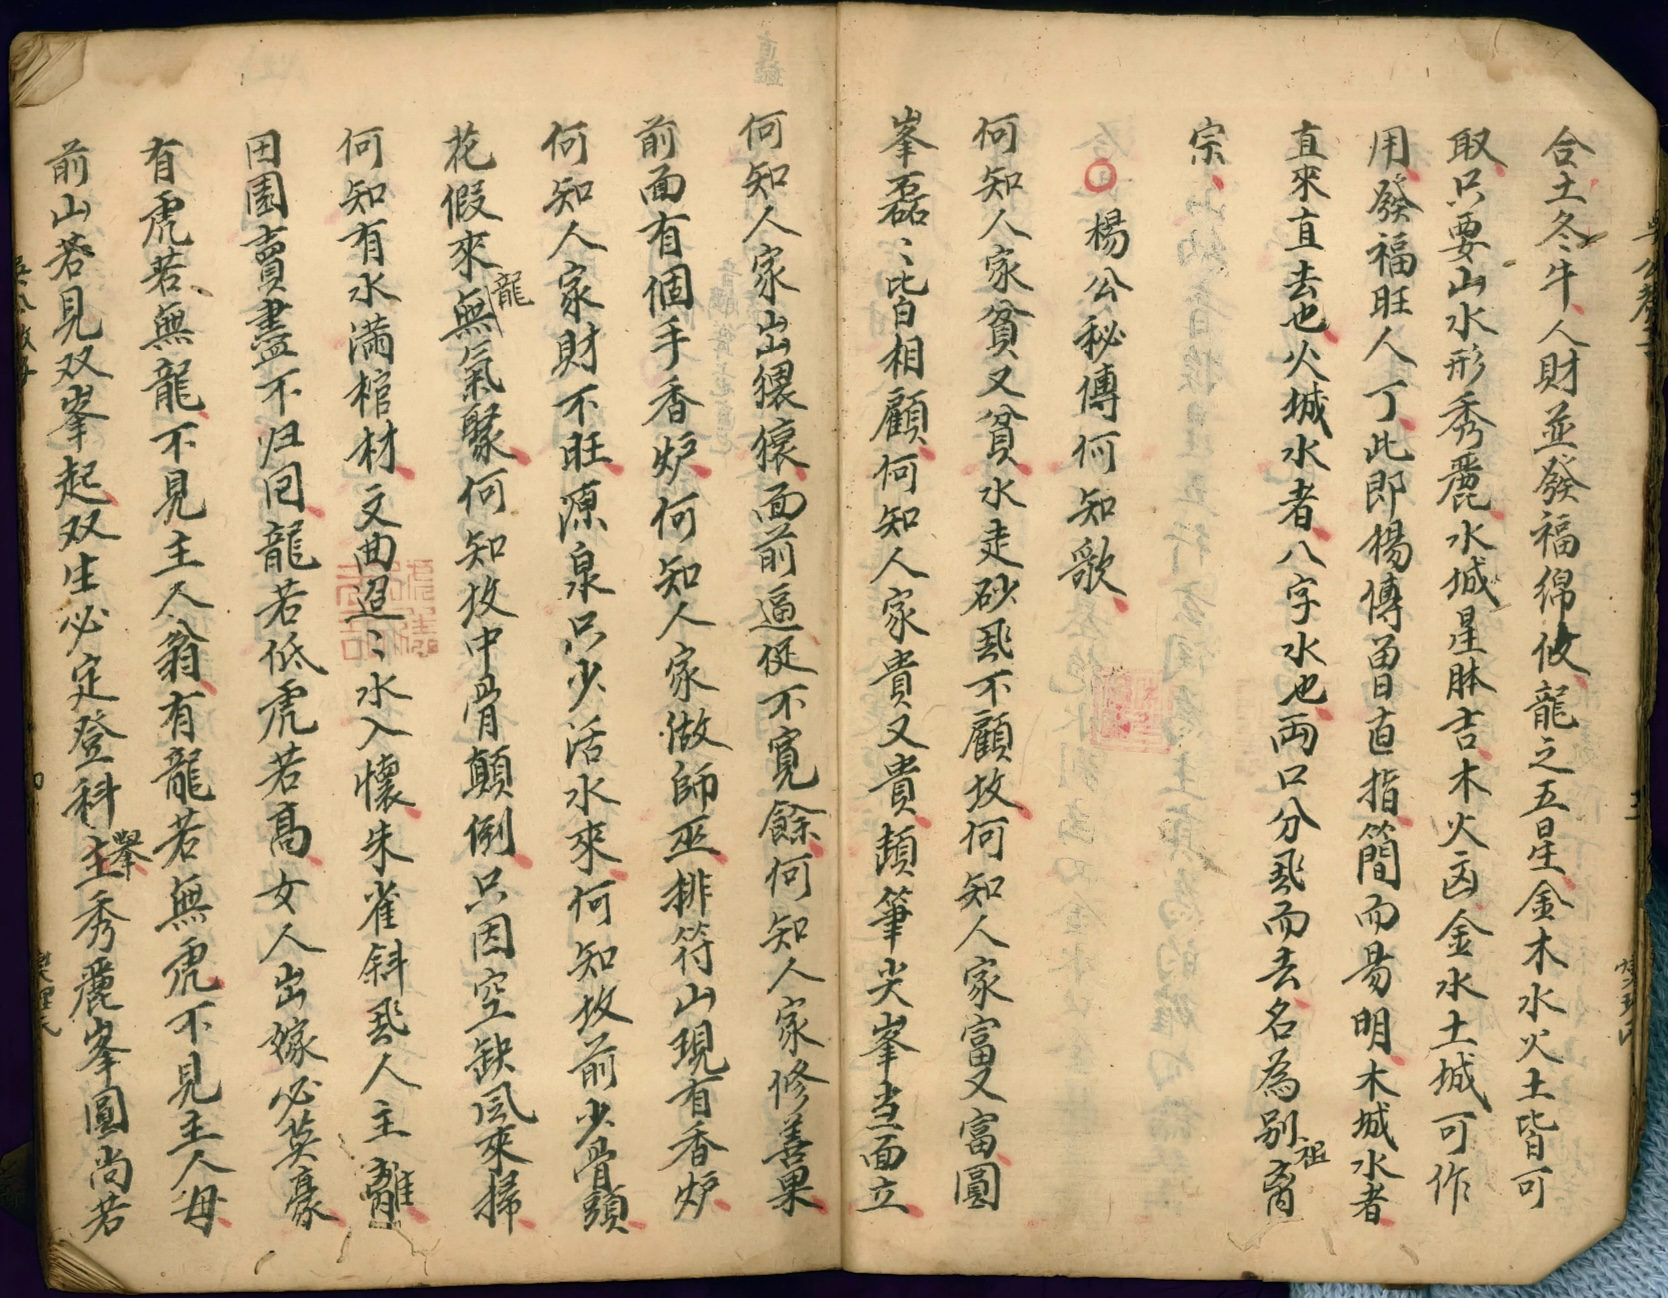 合土冬牛人財並發福綿攸龍之五星金木水火土皆可
取只要山水形秀麗水城星躰吉木火凶金水土城可作
用發福旺人丁此即楊傳曾直指簡而昜明木城水者
直來直去也火城水者八字水也両口分飛而去名為別祖离
宗
○楊公秘傳何知歌
何知人家貧又貧水走砂飛不顧坟何知人家富又富圓
峯磊〻皆相顧何知人家貴又貴頪筆尖峯当面立
何知人家出猥猿面前逼促不寬餘何知人家修善果
前面有個手香炉何知人家做師巫排符山現有香炉
何知人家財不旺源泉只少活水來何知坟前少骨頭
花假來龍無氣聚何知坟中骨顛倒只因空缺風來掃
何知有水滿棺材文曲迢〻水入懷朱雀斜飛人主離
田園賣盡不归囘龍若低虎若髙女人出嫁必英豪
有虎若無龍不見主人翁有龍若無虎不見主人母
前山若見双峯起双生必定登科舉主秀麗峯圓尚若